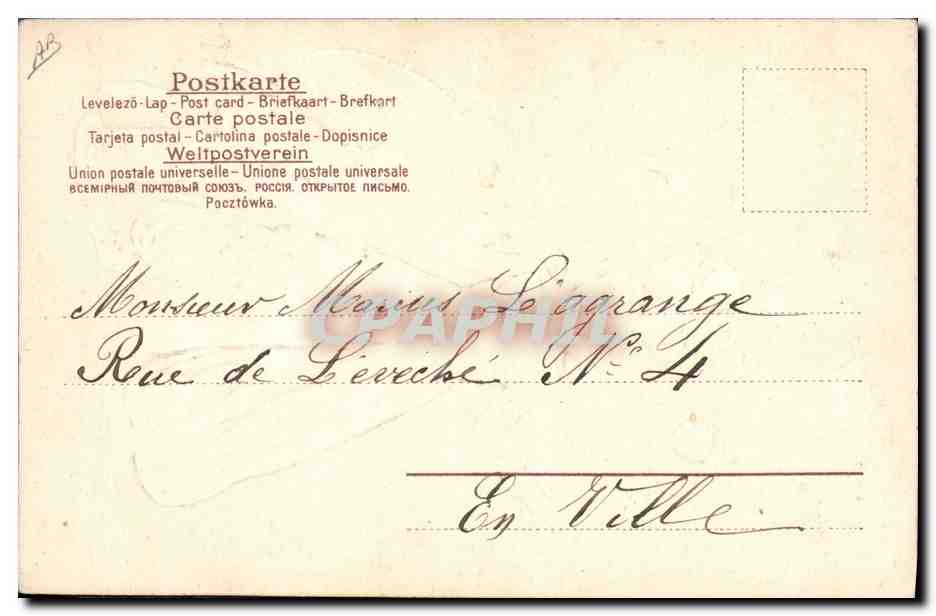 AB
Postkarte
Levelező-Lap - Post card - Briefkaart - Brefkort
Carte postale
Tarjeta postal - Cartolina postale - Dopisnice
Weltpostverein
Union postale universelle - Unione postale universale
ВСЕМІРНЫЙ ПОЧТОВЫЙ СОЮЗЪ. РОССІЯ. ОТКРЫТОЕ ПИСЬМО.
Pocztówka.
Monsieur Marius Léagrange
CPAPHIL
Rue de L'évéché No 4
En Ville